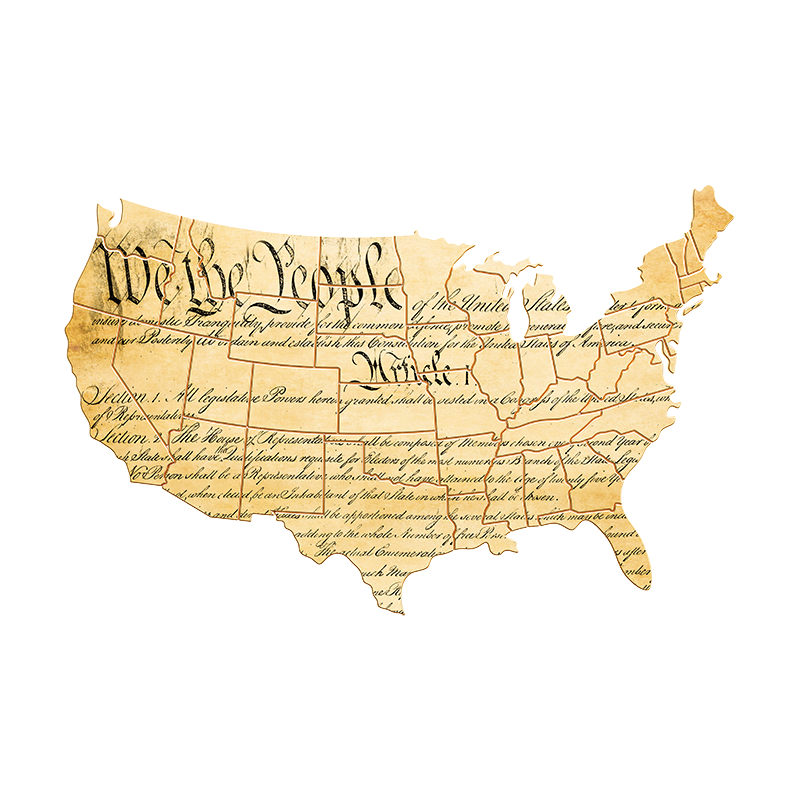 We the People
of the United States, form
insure domestic Tranquility, provide for the common defence, promote general fare, and secure
and our Posterity, do ordain and establish this Constitution for the United States of America.
Article. 1.
Section. 1. All legislative Powers herein granted shall be vested in a Congress of the United States, wh
of Representatives.
Section. 2. The House of Representatives shall be composed of Members chosen every second Year
State shall have Qualifications requisite for Electors of the most numerous Branch of the State Legis
No Person shall be a Representative who shall not have attained to the Age of twenty five Y
d, when elected, be an Inhabitant of that State in which he shall be chosen.
and direct Taxes shall be apportioned among the several States which may be inclu
adding to the whole Number of free Pers ound
The actual Enumerat s after
uch Ma mber